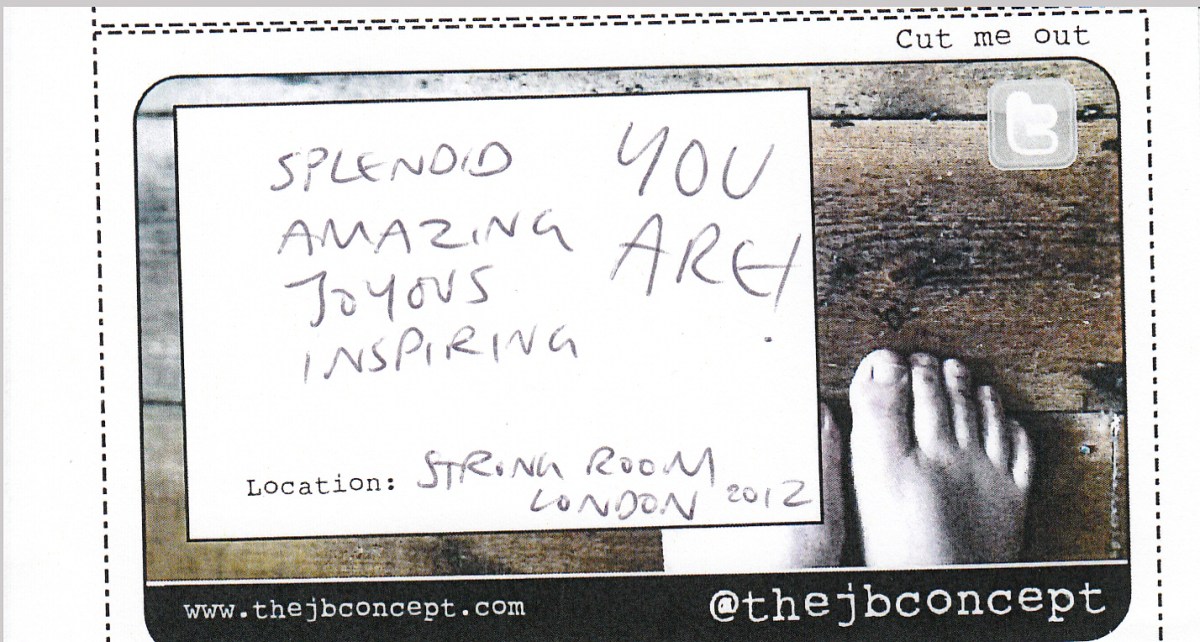 Cut me out
SPLENDID
AMAZING
JOYOUS
INSPIRING
YOU
ARE!
Location: STRING ROOM
LONDON 2012
www.thejbconcept.com
@thejbconcept